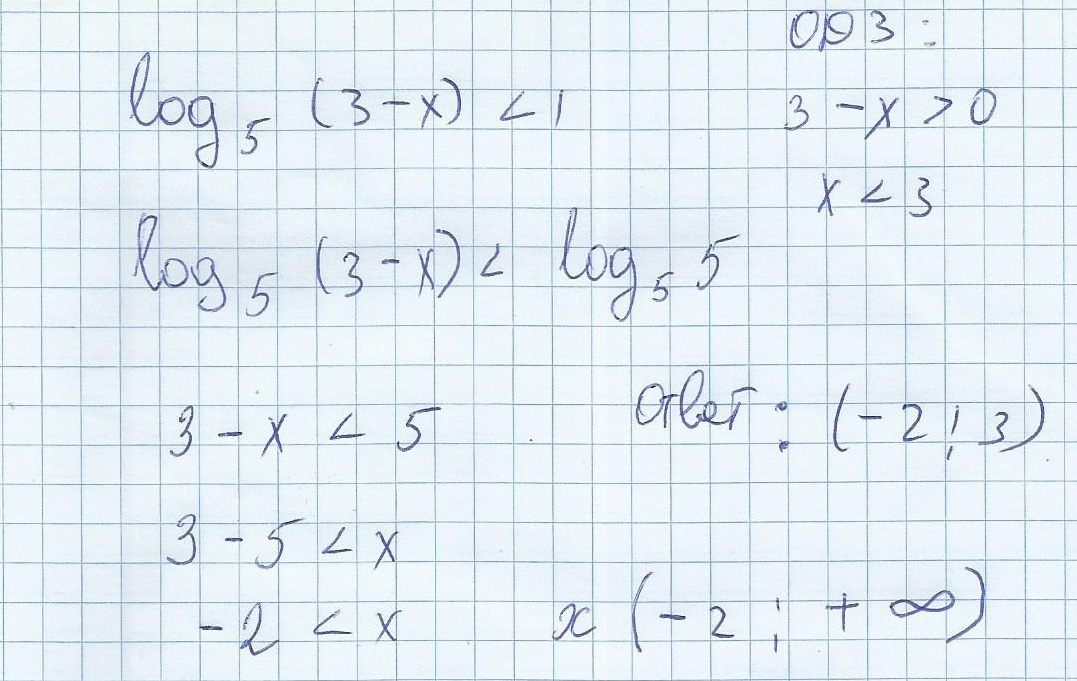 ОДЗ:
log₅ (3-x) < 1
3 - x > 0
x < 3
log₅ (3-x) < log₅ 5
3 - x < 5
Ответ: (-2; 3)
3 - 5 < x
-2 < x
x (-2; +∞)